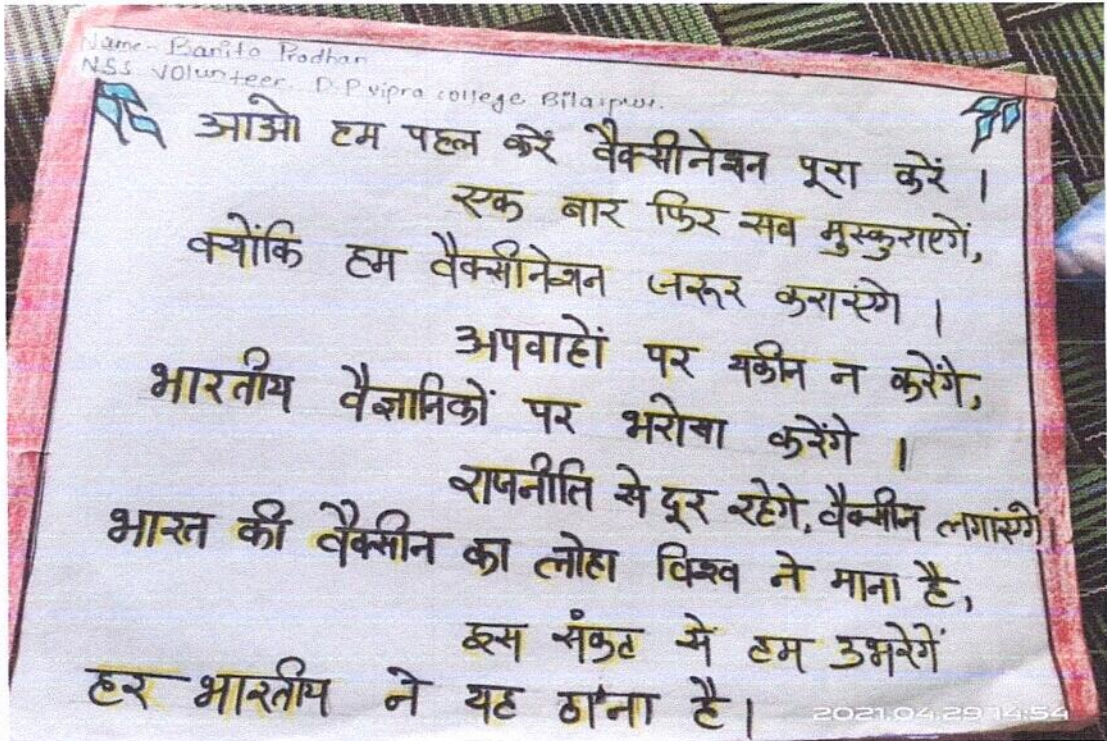 Name- Banita Pradhan
NSS Volunteer. D.P vipra college Bilaspur.
आओ हम पहल करें वैक्सीनेशन पूरा करें ।
एक बार फिर सब मुस्कुराएगें,
क्योंकि हम वैक्सीनेशन जरूर कराएंगे ।
अपवाहों पर यकीन न करेंगे,
भारतीय वैज्ञानिकों पर भरोसा करेंगे ।
राजनीति से दूर रहेगे, वैक्सीन लगांएगे।
भारत की वैक्सीन का लोहा विश्व ने माना है,
इस संकट से हम उभरेगें
हर भारतीय ने यह ठाना है।
2021.04.29 14:54